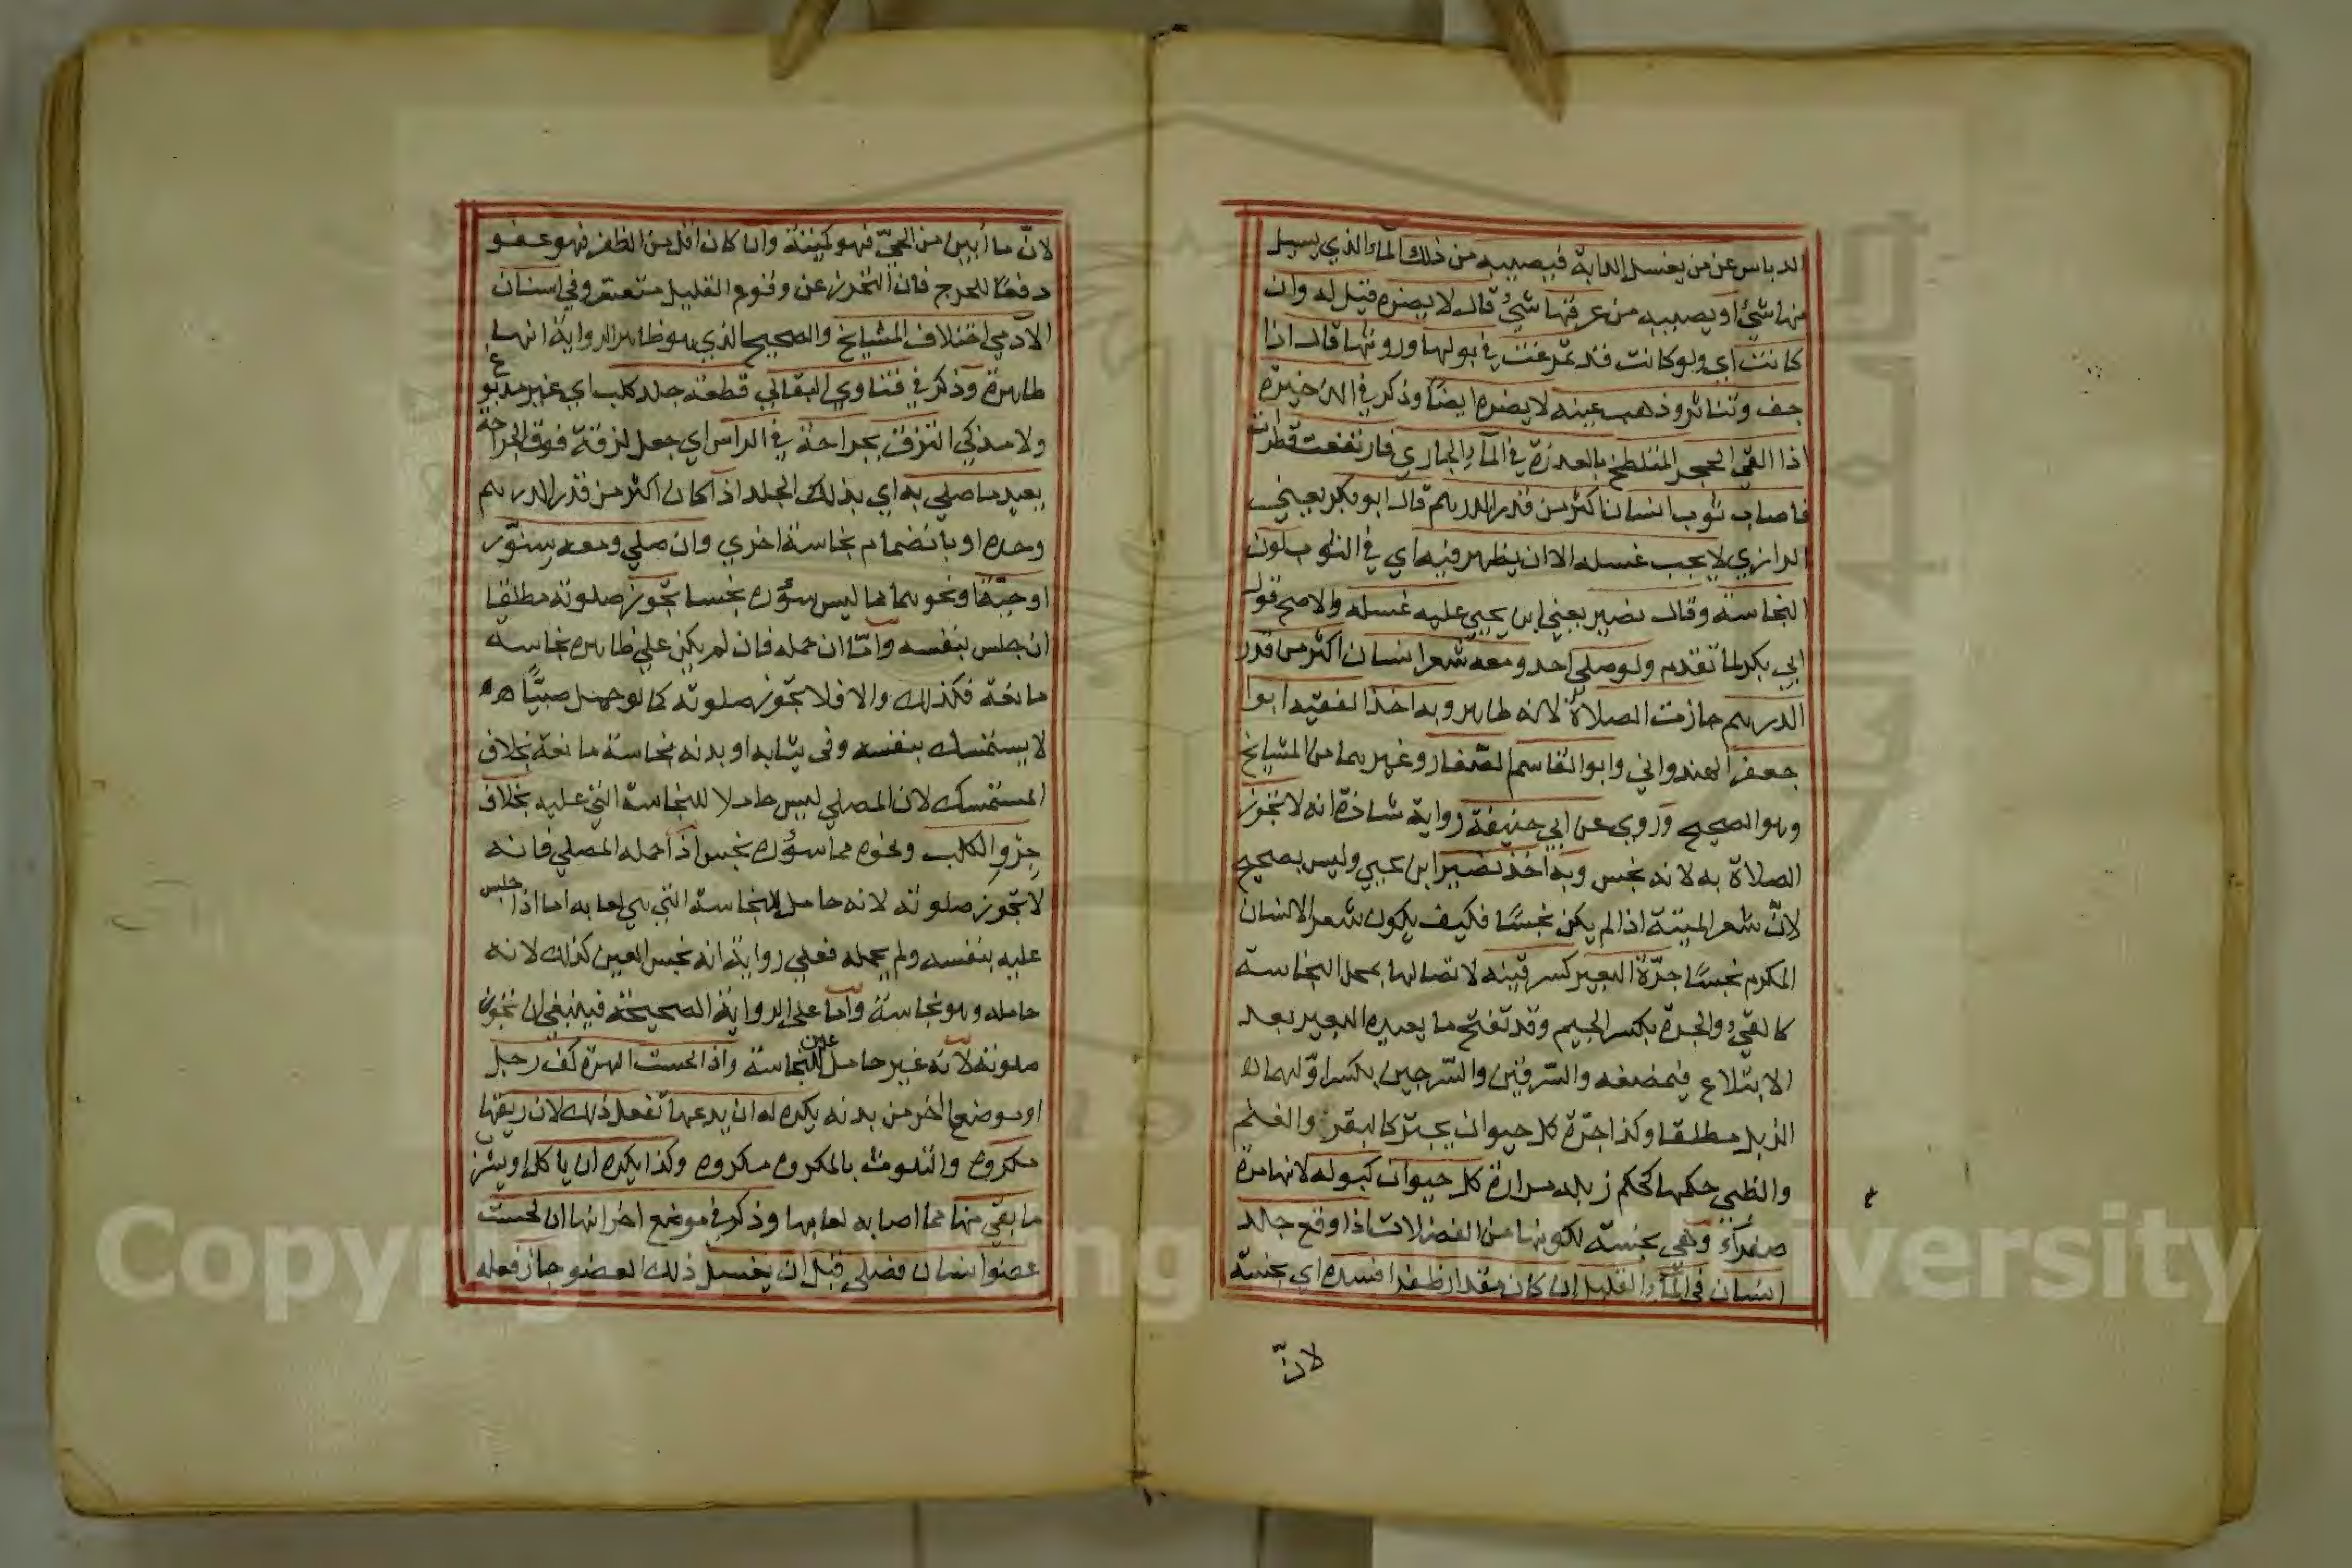 الدباس عن من يغسل الدابة فيصيبه من ذلك الماء الذي يسيل
منها شيء او يصيبه من عرقها شيء قال لا يضره قيل له وان
كانت اي ولو كانت قد تمرغت في بولها وروثها قال اذا
جف وتناثر وذهب عينه لا يضره ايضا وذكر في الذخيرة
اذا القي الحجر المتلطخ بالعذرة في الماء الجاري فارتفعت قطرات
فاصاب ثوب انسان اكثر من قدر الدرهم قال ابو بكر يعني
الرازي لا يجب غسله الا ان يظهر فيه اي في الثوب لون
النجاسة وقال نصير يعني ابن يحيي عليه غسله والاصح قول
ابي بكر لما تقدم ولو صلي احد ومعه شعر انسان اكثر من قدر
الدرهم جازت الصلاة لانه طاهر وبه اخذ الفقيه ابوا
جعفر الهندواني وابو القاسم الصفار وغيرهما من المشايخ
وهو الصحيح وروي عن ابي حنيفة رواية شاذة انه لا تجوز
الصلاة به لانه نجس وبه اخذ نصير ابن يحيي وليس بصحيح
لانّ شعر الميتة اذا لم يكن نجسًا فكيف يكون شعر الانسان
المكرم نجسًا جرّة البعير كسرقينه لاتصالها بمحل النجاسة
كالقيء والجرة بكسر الجيم وقد تفتح ما يعيده البعير بعد
الابتلاع فيمضغه والسّرقين والسّرجين بكسر اوّلهما
الزبل مطلقا وكذا جرّة كل حيوان يجتر كالبقر والغنم
والظبي حكمها كحكم زبله مرارة كل حيوان كبوله لانها مرة
صفراء وهي نجسة لكونها من الفضلات اذا وقع جلد
انسان في الماء القليل ان كان مقدار ظفر افسده اي نجسه
لانّ
لانّ ما أبين من الحيّ فهو كميتة وان كان اقل من الظفر فهو عفو
دفعًا للحرج فان التحرز عن وقوع القليل متعسر وفي اسنان
الآدمي اختلاف المشايخ والصحيح الذي هو ظاهر الرواية انها
طاهرة وذكر في فتاوي البقالي قطعة جلد كلب اي غير مدبوغ
ولا مذكي التزق بجراحة في الراس اي جعل لزقة فوق الجراحة
يعيد ما صلي به اي بذلك الجلد اذا كان اكثر من قدر الدرهم
وحده او بانضمام نجاسة اخري وان صلي ومعه سنّور
او حيّة او نحوهما مما ليس سؤره نجسا تجوز صلوته مطلقا
ان جلس بنفسه وأمّا ان حمله فان لم يكن علي ظاهره نجاسة
مانعة فكذلك والا فلا تجوز صلوته كما لو حمل صبيًّا
لا يستمسك بنفسه وفى ثيابه او بدنه نجاسة مانعة بخلاف
المستمسك لان المصلي ليس حاملا للنجاسة التي عليه بخلاف
جرو الكلب ونحوه مما سؤره نجس اذا حمله المصلي فانه
لا تجوز صلوته لانه حامل للنجاسة التي هي لعابه اما اذا جلس
عليه بنفسه ولم يحمله فعلي رواية انه نجس العين كذلك لانه
حامله وهو نجاسة وأما علي الرواية الصحيحة فينبغي ان تجوز
صلوته لانّه غير حامل عين للنجاسة واذا لحست الهرة كف رجل
او موضعا اخر من بدنه يكره له ان يدعها تفعل ذلك لان ريقها
مكروه والتلوث بالمكروه مكروه وكذا يكره ان ياكل او يشرب
ما بقي منها مما اصابه لعابها وذكر في موضع اخر انها ان لحست
عضو انسان فصلي قبل ان يغسل ذلك العضو جاز فعله
Copyright © King University